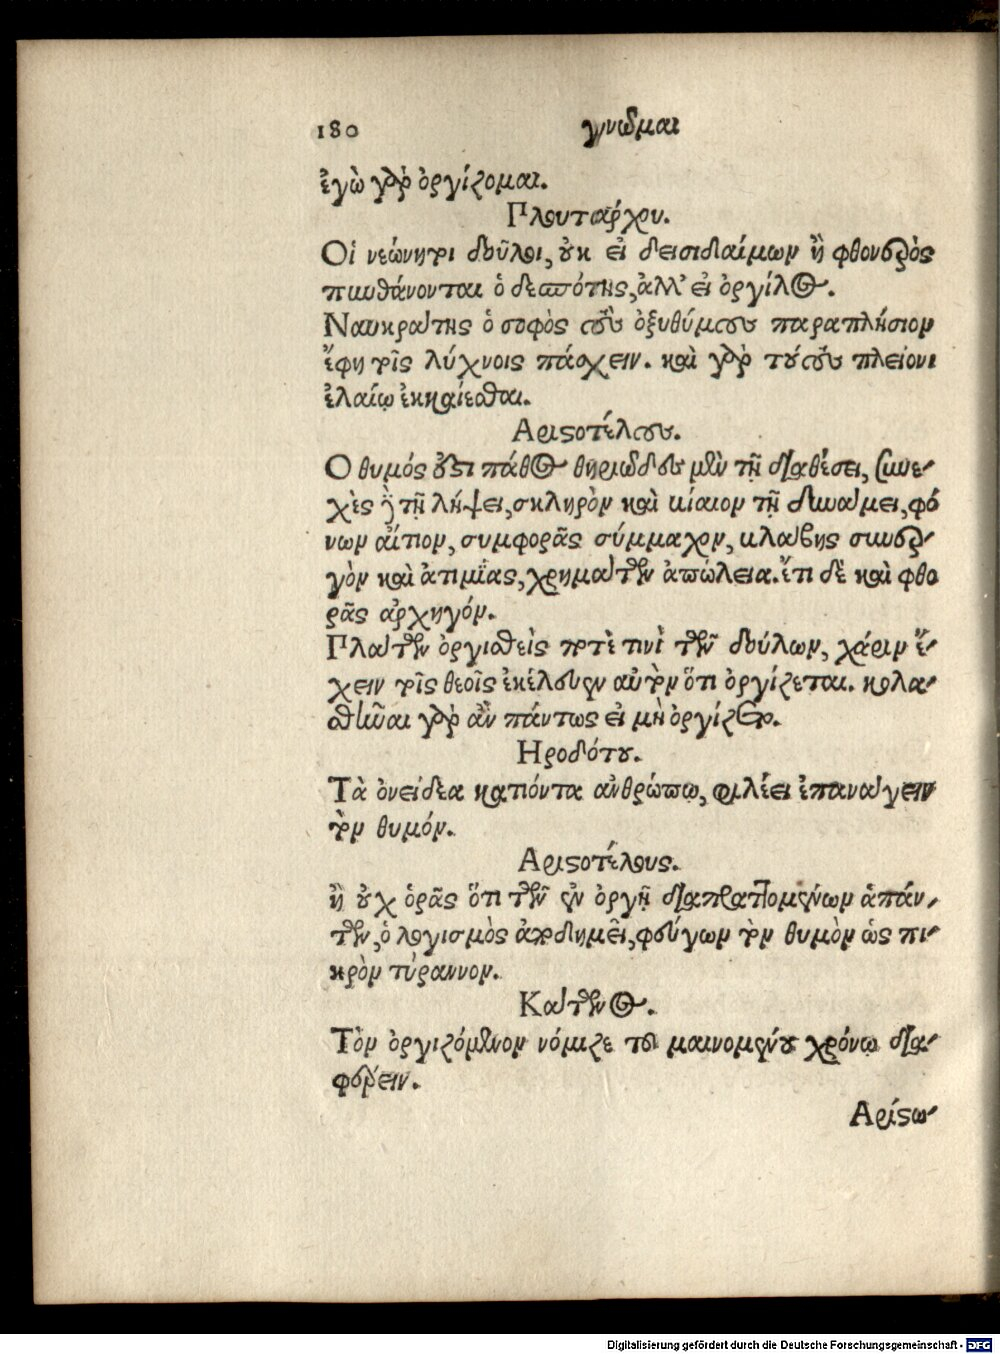 180 γνῶμαι
ἐγὼ γὰρ ὀργίζομαι.
Πλουτάρχου.
Οἱ νεώνητοι δοῦλοι, οὐκ εἰ δεισιδαίμων ἢ φθονερὸς
πυνθάνονται ὁ δεσπότης, ἀλλ' εἰ ὀργίλος.
Ναυκράτης ὁ σοφὸς τοὺς ὀξυθύμους παραπλήσιον
ἔφη τοῖς λύχνοις πάσχειν. καὶ γὰρ τούτους πλείονι
ἐλαίῳ ἐκκαίεσθαι.
Αριστοτέλους.
Ο θυμός ἐστι πάθος θηριῶδες μὲν τῇ διαθέσει, συνε-
χὲς δὲ τῇ λήψει, σκληρὸν καὶ βίαιον τῇ δυνάμει, φό
νων αἴτιον, συμφορᾶς σύμμαχον, βλάβης συνερ-
γὸν καὶ ἀτιμίας, χρημάτων ἀπώλεια. ἔτι δὲ καὶ φθο
ρᾶς ἀρχηγόν.
Πλάτων ὀργισθεὶς ποτὲ τινὶ τῶν δούλων, χάριν ἔ-
χειν τοῖς θεοῖς ἐκέλευεν αὐτὸν ὅτι ὀργίζεται. κολα-
σθῆναι γὰρ ἂν πάντως εἰ μὴ ὀργίζετο.
Ηροδότου.
Τὰ ὀνείδεα κατιόντα ἀνθρώπῳ, φιλέει ἐπανάγειν
τὸν θυμόν.
Αριστοτέλους.
ἢ οὐχ ὁρᾶς ὅτι τῶν ἐν ὀργῇ διαπραττομένων ἁπάν-
των, ὁ λογισμὸς ἀποδημεῖ, φεύγων τὸν θυμὸν ὡς πι-
κρὸν τύραννον.
Κάτωνος.
Τὸν ὀργιζόμενον νόμιζε τοῦ μαινομένου χρόνῳ δια-
φέρειν.
Αρίστω-
Digitalisierung gefördert durch die Deutsche Forschungsgemeinschaft - DFG